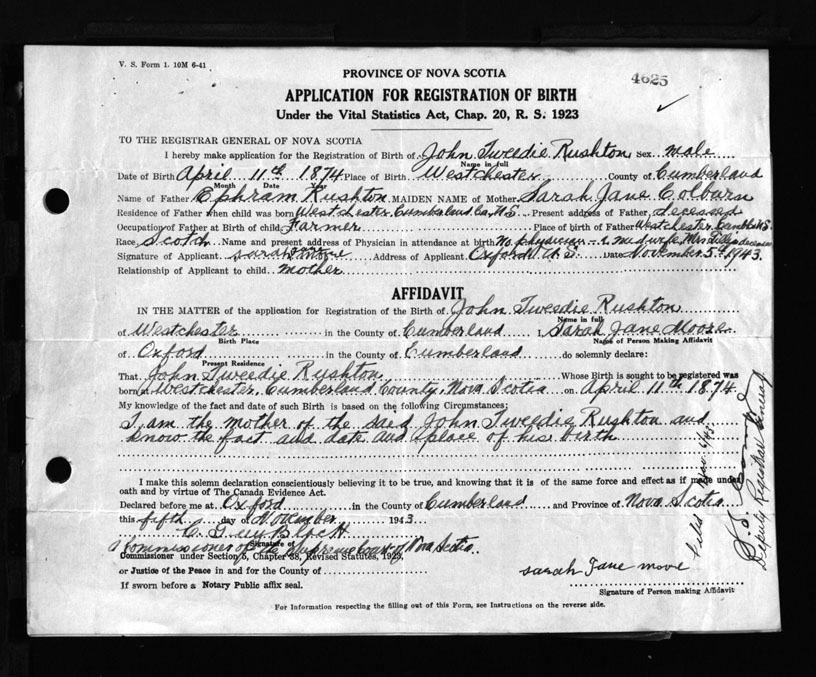 V. S. Form 1. 10M 6-41
4625
PROVINCE OF NOVA SCOTIA
APPLICATION FOR REGISTRATION OF BIRTH
Under the Vital Statistics Act, Chap. 20, R. S. 1923
TO THE REGISTRAR GENERAL OF NOVA SCOTIA
I hereby make application for the Registration of Birth of John Tweedie Rushton Sex male
Name in full
Date of Birth April 11th 1874 Place of Birth Westchester County of Cumberland
Month Date Year
Name of Father Ephram Rushton MAIDEN NAME of Mother Sarah Jane Colburn
Residence of Father when child was born Westchester Cumberland Co. N.S. Present address of Father deceased
Occupation of Father at Birth of child Farmer Place of birth of Father Westchester
Race Scotch Name and present address of Physician in attendance at birth No physician - midwife Mrs deceased
Signature of Applicant sarah Jane Address of Applicant Oxford N.S. Date November 5th 1943.
Relationship of Applicant to child mother
AFFIDAVIT
IN THE MATTER of the application for Registration of the Birth of John Tweedie Rushton
Name in full
of Westchester in the County of Cumberland I, Sarah Jane Moore
Birth Place Name of Person Making Affidavit
of Oxford in the County of Cumberland do solemnly declare:
Present Residence
That John Tweedie Rushton Whose Birth is sought to be registered was
born at Westchester, Cumberland County, Nova Scotia on April 11th 1874
My knowledge of the fact and date of such Birth is based on the following Circumstances:
I am the mother of the said John Tweedie Rushton and
know the fact and date and place of his birth
I make this solemn declaration conscientiously believing it to be true, and knowing that it is of the same force and effect as if made under
oath and by virtue of The Canada Evidence Act.
Declared before me at Oxford in the County of Cumberland and Province of Nova Scotia
this fifth day of November 1943
Signature of
A Commissioner of the Supreme Court of Nova Scotia
Commissioner under Section 5, Chapter 38, Revised Statutes, 1923.
or Justice of the Peace in and for the County of
sarah Jane move
If sworn before a Notary Public affix seal.
Signature of Person making Affidavit
For Information respecting the filling out of this Form, see Instructions on the reverse side.
Filed Nov.
Deputy Registrar General